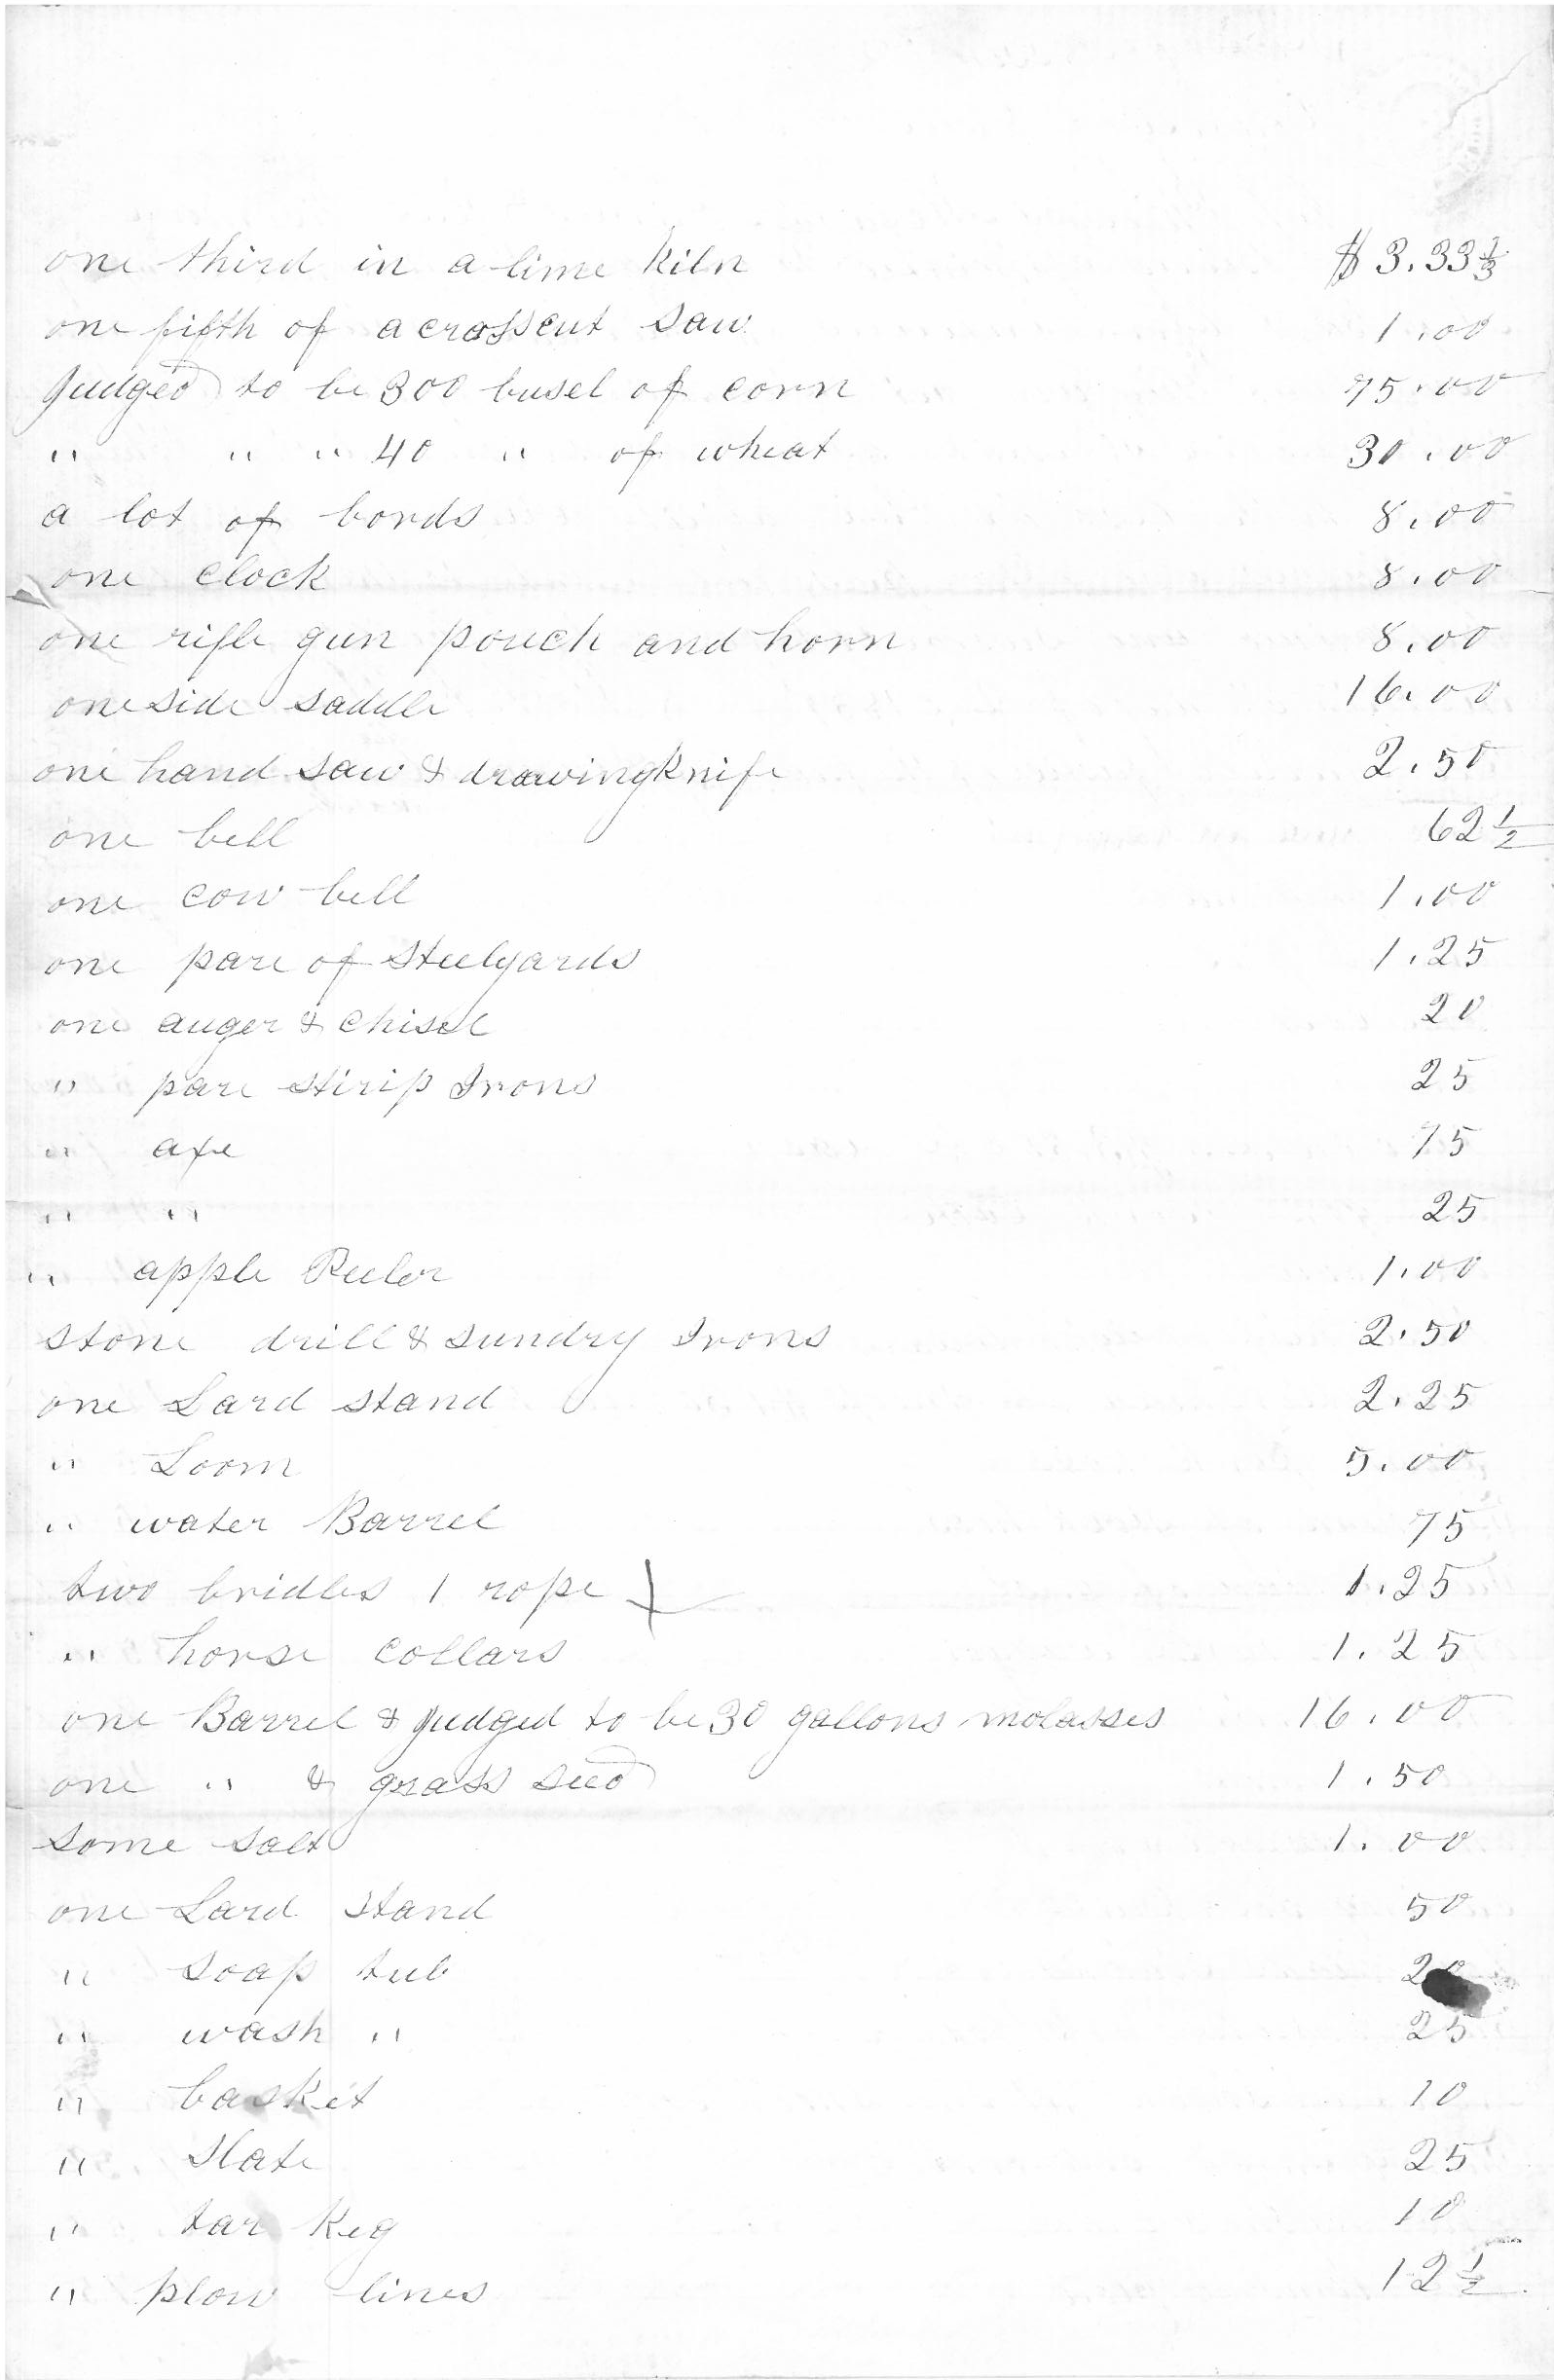 one third in a lime kiln $ 3.33 1/3
one fifth of a crosscut saw 1.00
Judged to be 300 busel of corn 75.00
" " " 40 " of wheat 30.00
a lot of bords 8.00
one clock 8.00
one rifle gun pouch and horn 8.00
one side saddle 16.00
one hand saw & drawingknife 2.50
one bell 62 1/2
one cow bell 1.00
one pare of steelyards 1.25
one auger & chisel 20
" pare stirip Irons 25
" axe 75
" " 25
" apple Peeler 1.00
stone drill & sundry Irons 2.50
one Lard stand 2.25
" Loom 5.00
" water Barrel 75
two bridles 1 rope 1.25
" horse collars 1.25
one Barrel & Judged to be 30 gallons molasses 16.00
one " & grass seed 1.50
some salt 1.00
one Lard stand 50
" soap tub 20
" wash " 25
" basket 10
" slate 25
" tar keg 10
" plow lines 12 1/2